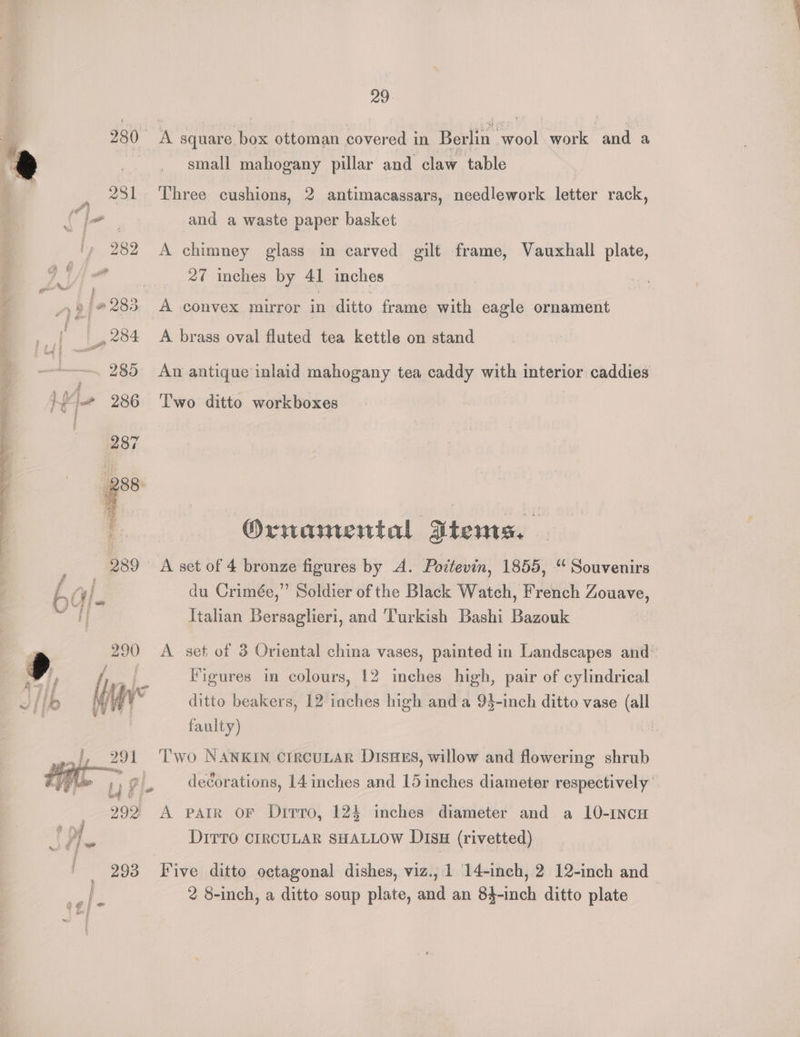 29
280 A square box ottoman covered in Berlin wool work and a
small mahogany pillar and claw table
281 Three cushions, 2 antimacassars, needlework letter rack,
and a waste paper basket
282 A chimney glass in carved gilt frame, Vauxhall plate,
27 inches by 41 inches
283 A convex mirror in ditto frame with eagle ornament
284 A brass oval fluted tea kettle on stand
285 An antique inlaid mahogany tea caddy with interior caddies
286 Two ditto workboxes
287
288
Ornamental Items.
289 A set of 4 bronze figures by A. Poitevin, 1855, “Souvenirs
du Crimée,” Soldier of the Black Watch, French Zouave,
Italian Bersaglieri, and Turkish Bashi Bazouk
290 A set of 3 Oriental china vases, painted in Landscapes and
Figures in colours, 12 inches high, pair of cylindrical
ditto beakers, 12 inches high and a 9½-inch ditto vase (all
faulty)
291 Two NANKIN CIRCULAR DISHES, willow and flowering shrub
decorations, 14 inches and 15 inches diameter respectively
292 A PAIR OF DITTO, 12½ inches diameter and a 10-INCH
DITTO CIRCULAR SHALLOW DISH (rivetted)
293 Five ditto octagonal dishes, viz., 1 14-inch, 2 12-inch and
2 8-inch, a ditto soup plate, and an 8½-inch ditto plate